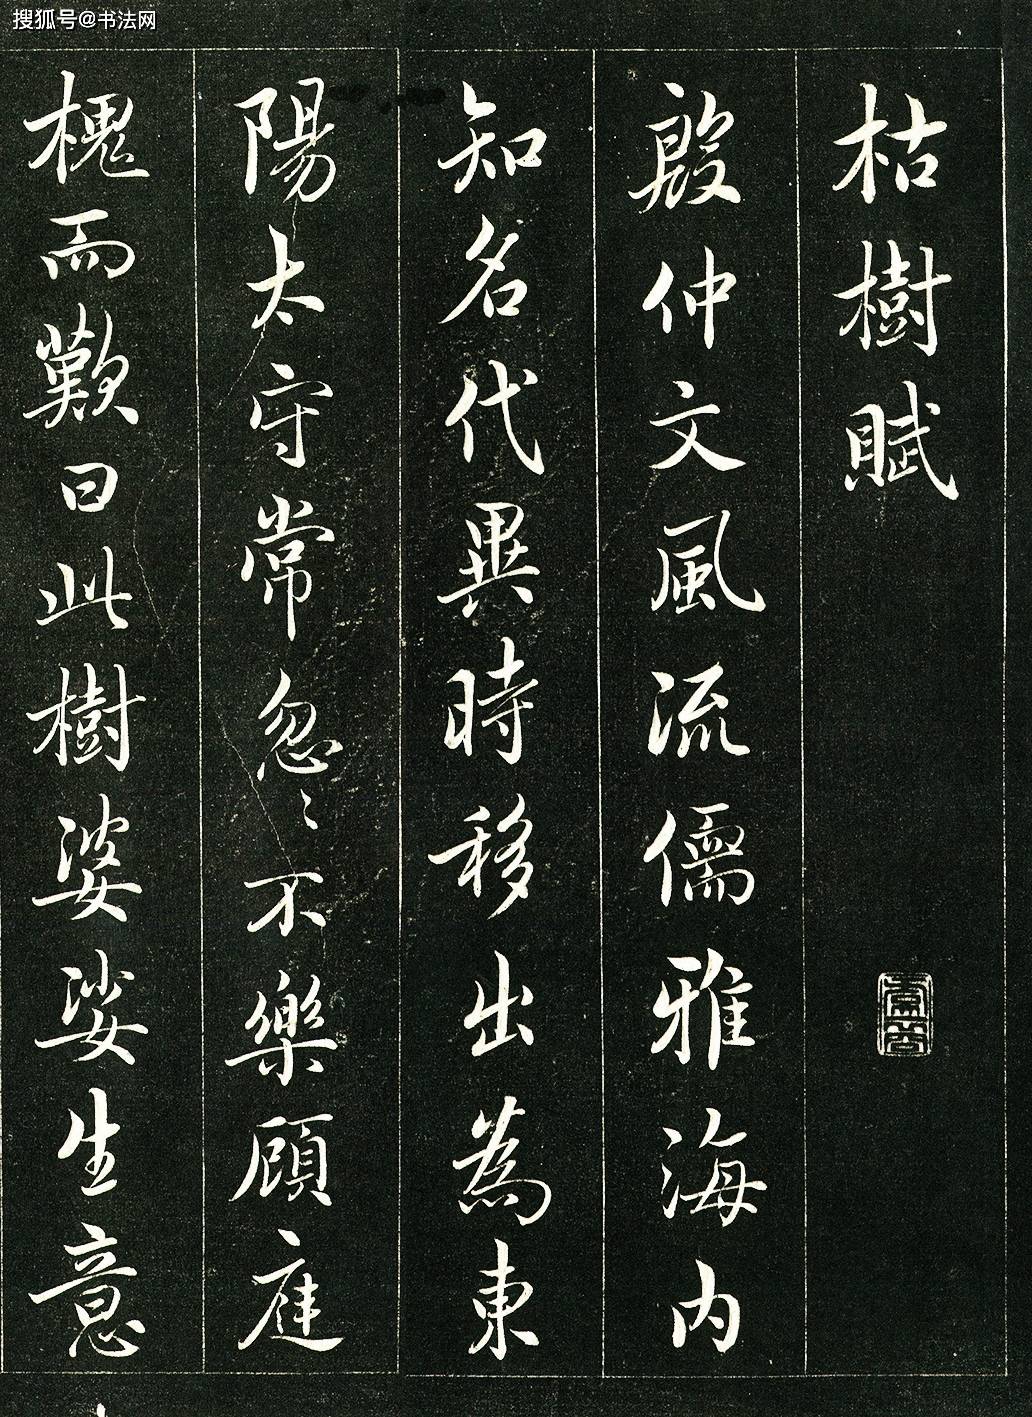 搜狐号@书法网
枯樹賦
殷仲文風流儒雅海内
知名代異時移出為東
陽太守常忽〻不樂顧庭
槐而歎曰此樹婆娑生意